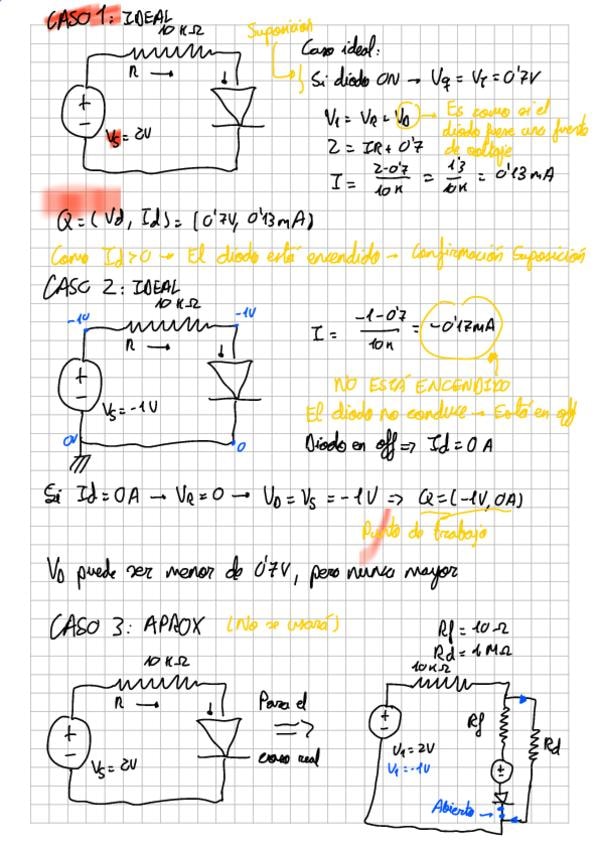 CASO 1: IDEAL
10 KΩ
R →
Vs = 2V
Suposición
Caso ideal:
Si diodo ON → Vq = Vγ = 0'7V
V1 = VR + VD → Es como si el
diodo fuese una fuente
de voltaje
2 = IR + 0'7
I = 2-0'7 / 10K = 1'3 / 10K = 0'13 mA
Q = (Vd, Id) = (0'7V, 0'13mA)
Como Id > 0 → El diodo está encendido → Confirmación Suposición
CASO 2: IDEAL
10 KΩ
-1V
-1V
R →
Vs = -1V
0V
0
I = -1-0'7 / 10K = -0'17mA
NO ESTÁ ENCENDIDO
El diodo no conduce → Está en off
Diodo en off => Id = 0 A
Si Id = 0A → VR = 0 → VD = Vs = -1V => Q = (-1V, 0A)
Punto de trabajo
VD puede ser menor de 0'7V, pero nunca mayor
CASO 3: APROX (No se usará)
10 KΩ
R →
Vs = 2V
Para el
=>
caso real
Rf = 10 Ω
Rd = 1 MΩ
10KΩ
V1 = 2V
V1 = -1V
Rf
Rd
Abierto →